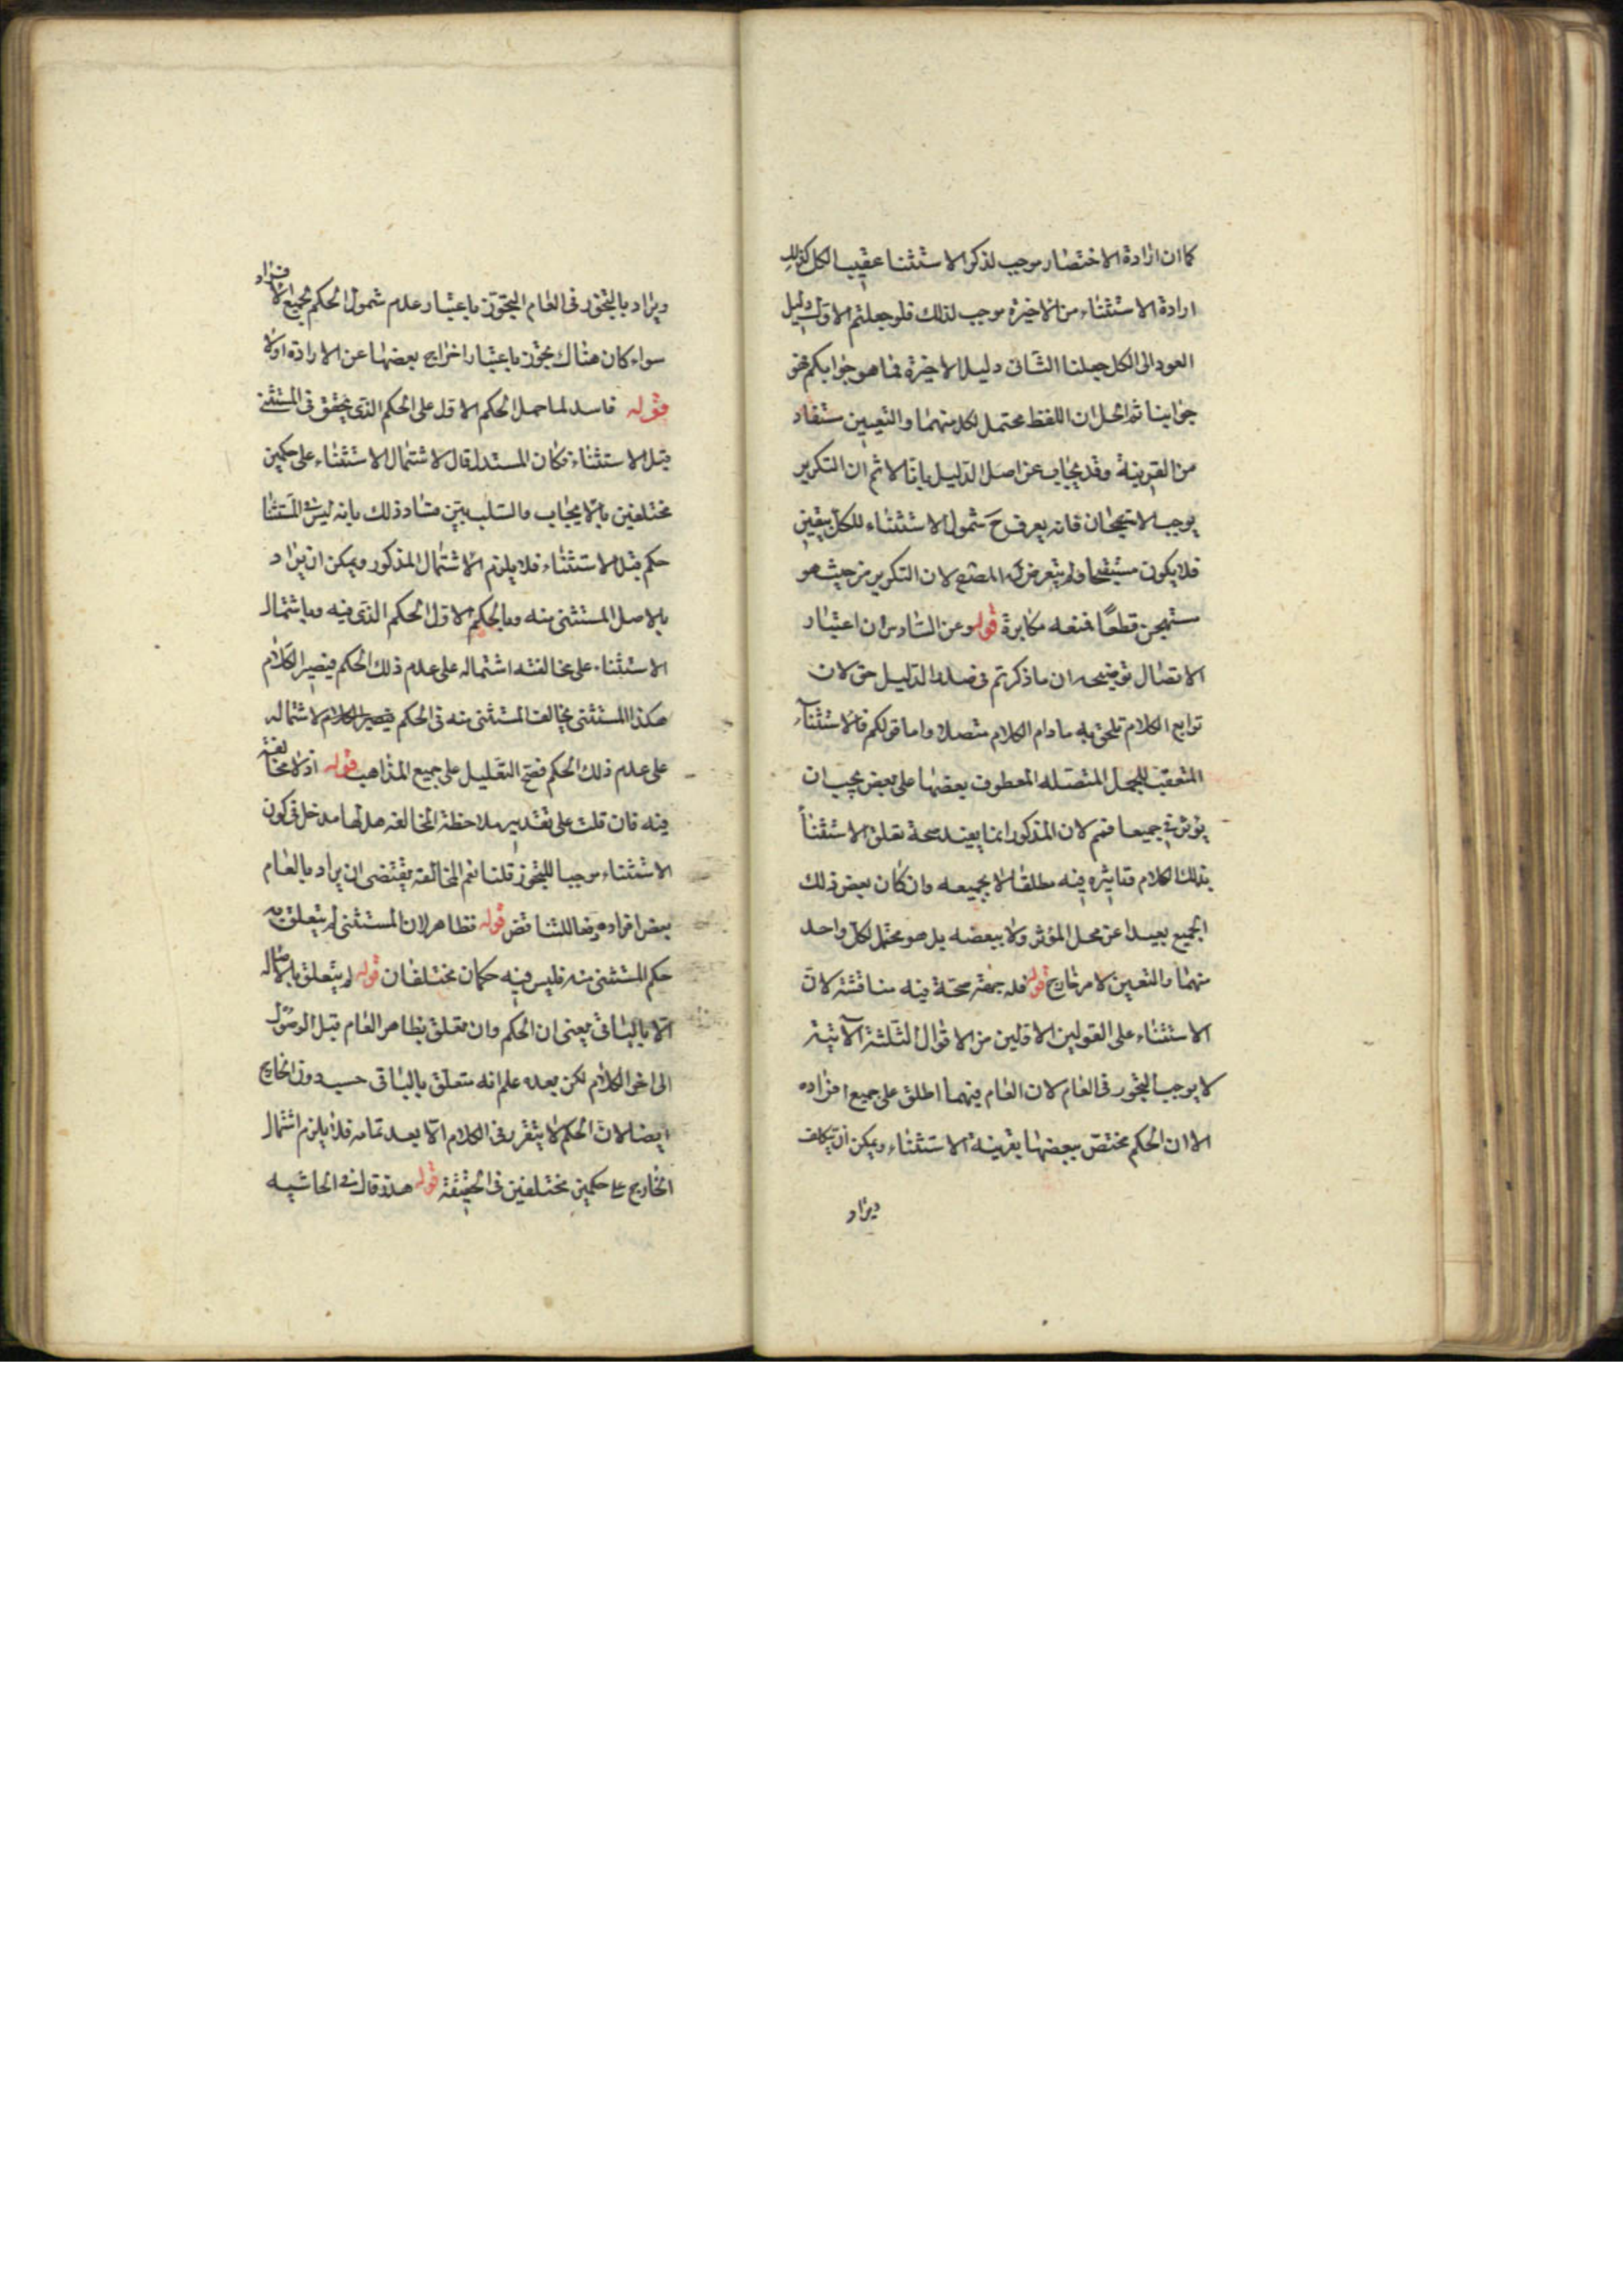 كما ان ارادة الاختصار موجب لذكر الاستثنا عقيب الكل كذلك
ارادة الاستثناء من الاخيرة موجب لذلك فلو جعلتم الاول دليل
العود الى الكل جعلنا الثانى دليل الاخيرة فما هو جوابكم فهو
جوابنا ثم الحل ان اللفظ محتمل لكل منهما والتعيين ستفاد
من القرينة وقد يجاب عن اصل الدليل بانا لا ثم ان التكرير
يوجب الاستهجان فانه يعرف ح شمول الاستثناء للكل بيقين
فلا يكون مستقبحا ولم يتعرض له المصنع لان التكرير من حيث هو
ستهجن قطعًا فمنعه مكابرة قوله وعن السادس ان اعتبار
الاتصال توضيحه ان ما ذكرتم فى صدر الدليل حق لان
توابع الكلام تلحق به ما دام الكلام متصلا واما قولكم فالاستثنآء
المتعقب للجمل المتصله المعطوف بعضها على بعض يجب ان
يؤثر فى جميعها فمم لان المذكور انما يفيد صحة تعلق الاستثنأ
بذلك الكلام وتاثيره فيه مطلقا لا بجميعه وان كان بعض ذلك
الجميع بعيدا عن محل المؤثر ولا ببعضه بل هو محتمل لكل واحد
منهما والتعيين لامر خارج قوله فله جهة صحة فيه مناقشة لان
الاستثناء على القولين الاولين من الاقوال الثلثة الآتية
لا يوجب التجوز فى العام لان العام فيهما اطلق على جميع افراده
الا ان الحكم مختص ببعضها بقرينة الاستثناء ويمكن ان يتكلف
ويراد
ويراد بالتجوز فى العام التجوّز باعتبار عدم شمول الحكم لجميع الافراد
سواء كان هناك تجوّز باعتبار اخراج بعضها عن الارادة اولا
قوله فاسد لما حمل الحكم الاول على الحكم الذى يتحقق فى المستثنى
قبل الاستثناء فكان المستدل قال لاشتمال الاستثناء على حكمين
مختلفين بالايجاب والسلب بيّن فساد ذلك بانه ليس فى المستثنا
حكم قبل الاستثناء فلا يلزم الاشتمال المذكور ويمكن ان يراد
بالاصل المستثنى منه وبالحكم الاول الحكم الذى فيه وباشتمال
الاستثناء على مخالفته اشتماله على عدم ذلك الحكم فيصير الكلام
هكذا المستثنى يخالف المستثنى منه فى الحكم فيصير الكلام لاشتماله
على عدم ذلك الحكم فصح التعليل على جميع المذاهب قوله اذ لا مخالفة
فيه فان قلت على تقدير ملاحظة المخالفه هل لها مدخل فى كون
الاستثناء موجبا للتجوز قلنا نعم المخالفة يقتضى ان يراد بالعام
بعض افراده دفعا للتناقض قوله فظاهر لان المستثنى لم يتعلق به
حكم المستثنى منه فليس فيه حكمان مختلفان قوله لم يتعلق بالاصاله
الا بالباقى يعنى ان الحكم وان تعلق بظاهر العام قبل الوصول
الى اخر الكلام لكن بعده علم انه متعلق بالباقى حسب دون الخارج
ايضا لان الحكم لا يتقرر فى الكلام الّا بعد تمامه فلا يلزم اشتمال
الخارج على حكمين مختلفين فى الحقيقة قوله هذا قال فى الحاشيه